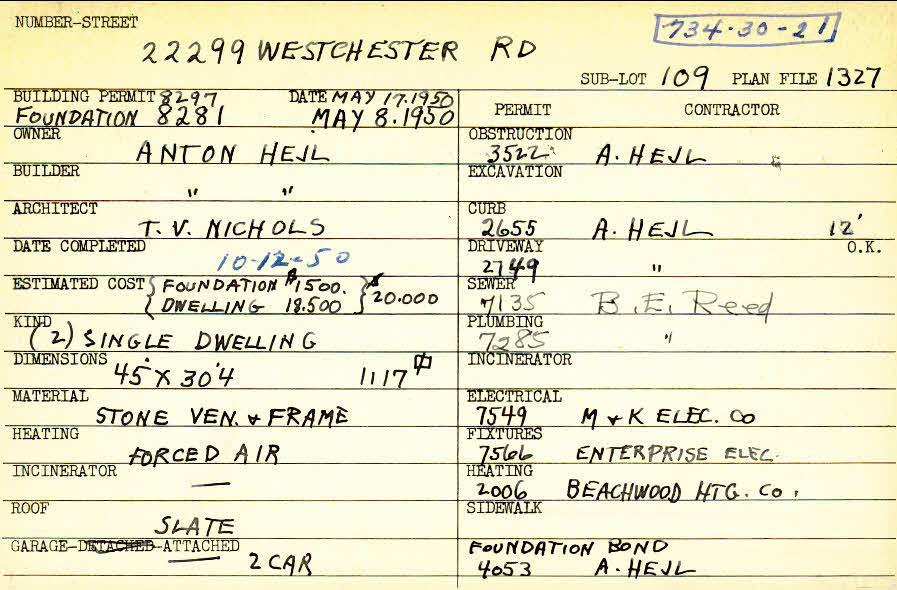 NUMBER-STREET
734-30-21
22299 WESTCHESTER RD
SUB-LOT 109 PLAN FILE 1327
BUILDING PERMIT 8297 DATE MAY 17.1950
FOUNDATION 8281 MAY 8.1950
OWNER
ANTON HEJL
BUILDER
" "
ARCHITECT
T. V. NICHOLS
DATE COMPLETED
10-12-50
ESTIMATED COST { FOUNDATION $1500. } $20.000
DWELLING 18.500
KIND
(2) SINGLE DWELLING
DIMENSIONS
45' X 30'4 1117
MATERIAL
STONE VEN. & FRAME
HEATING
FORCED AIR
INCINERATOR
—
ROOF
SLATE
GARAGE-DETACHED-ATTACHED
2 CAR
PERMIT CONTRACTOR
OBSTRUCTION
3522 A. HEJL
EXCAVATION
CURB
2655 A. HEJL 12'
DRIVEWAY O.K.
2749 "
SEWER
7135 B.E. Reed
PLUMBING
7285 "
INCINERATOR
ELECTRICAL
7549 M & K ELEC. CO
FIXTURES
7566 ENTERPRISE ELEC.
HEATING
2006 BEACHWOOD HTG. Co.
SIDEWALK
FOUNDATION BOND
4053 A. HEJL